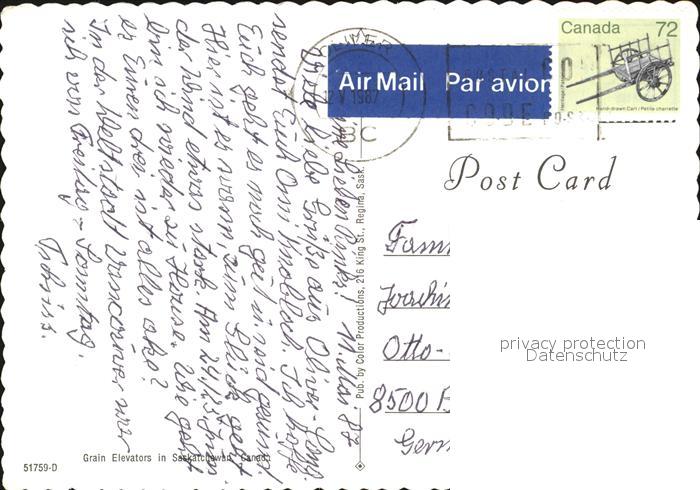 Canada 72
Air Mail Par avion
12 V 1987
BC
CODE
Hand-drawn Cart / Petite charrette
Post Card
Meine Lieben 11. Mai 87
Liebe Grüße aus Oliver
sendet Euch Oma Knobloch. Ich hoffe
Euch geht es noch gut u. seid gesund
Hier ist es warm, zum Glück geht
der Wind etwas stark. Am 24/25 Juni
bin ich wieder zu Hause. Wie geht
es Euch ist alles okay?
In der Weltstadt Vancouver war
ich von Freitag - Sonntag.
Tschüss.
Pub. by Color Productions, 216 King St., Regina, Sask.
Fam
Otto-
8500
Germ
privacy protection
Datenschutz
Grain Elevators in Saskatchewan, Canada
51759-D